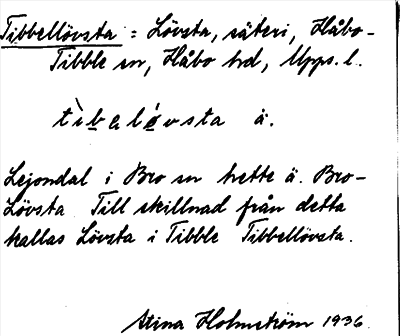 Tibbellövsta = Lövsta, säteri, Håbo-
Tibble sn, Håbo hd, Upps. l.
tìbelǿvsta ä.
Lejondal i Bro sn hette ä. Bro-
Lövsta Till skillnad från detta
kallas Lövsta i Tibble Tibbellövsta.
Stina Holmström 1936